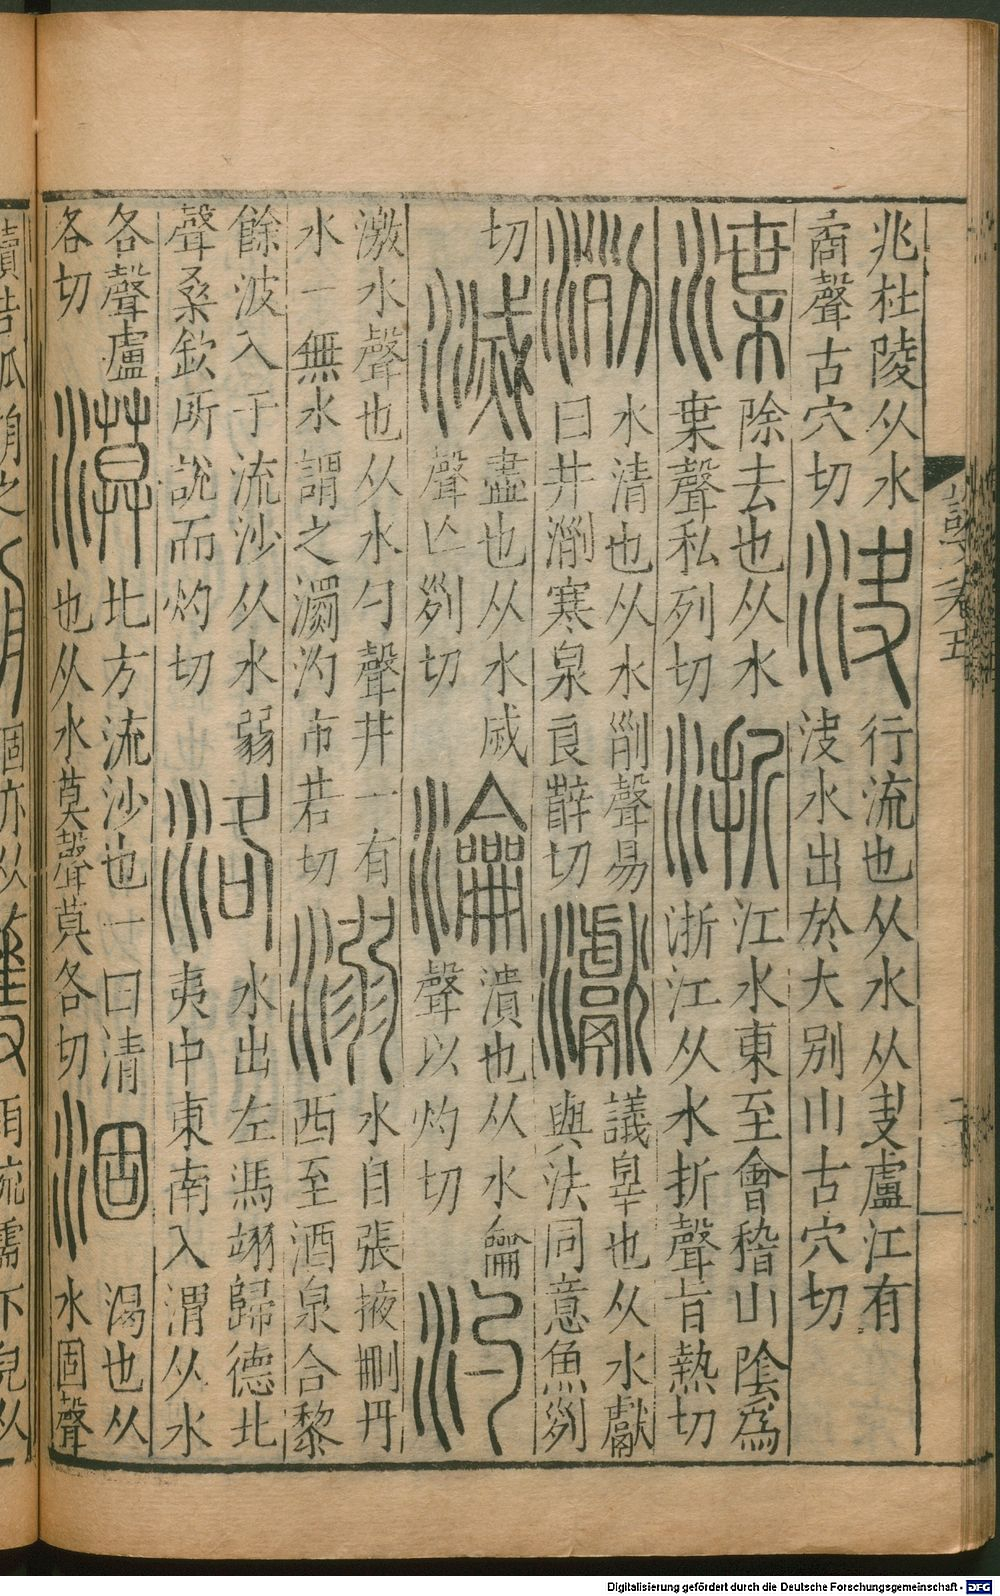 兆杜陵从水
矞聲古穴切
決
行流也从水从夬盧江有
決水出於大别山古穴切
渫
除去也从水
枼聲私列切
浙
江水東至會稽山隂爲
浙江从水折聲旨熱切
瀏
水清也从水𠛱聲易
曰井瀏寒泉良辥切
㵪
議辠也从水獻
與法同意魚𠛱
切
滅
盡也从水烕
聲亡𠛱切
瀹
漬也从水龠
聲以灼切
汋
激水聲也从水勺聲井一有
水一無水謂之瀱汋市若切
溺
水自張掖刪丹
西至酒泉合黎
餘波入于流沙从水弱
聲桑欽所說而灼切
洛
水出左馮翊歸德北
夷中東南入渭从水
各聲盧
各切
漠
北方流沙也一曰清
也从水莫聲莫各切
涸
渴也从
水固聲
說文卷五
Digitalisierung gefördert durch die Deutsche Forschungsgemeinschaft - DFG